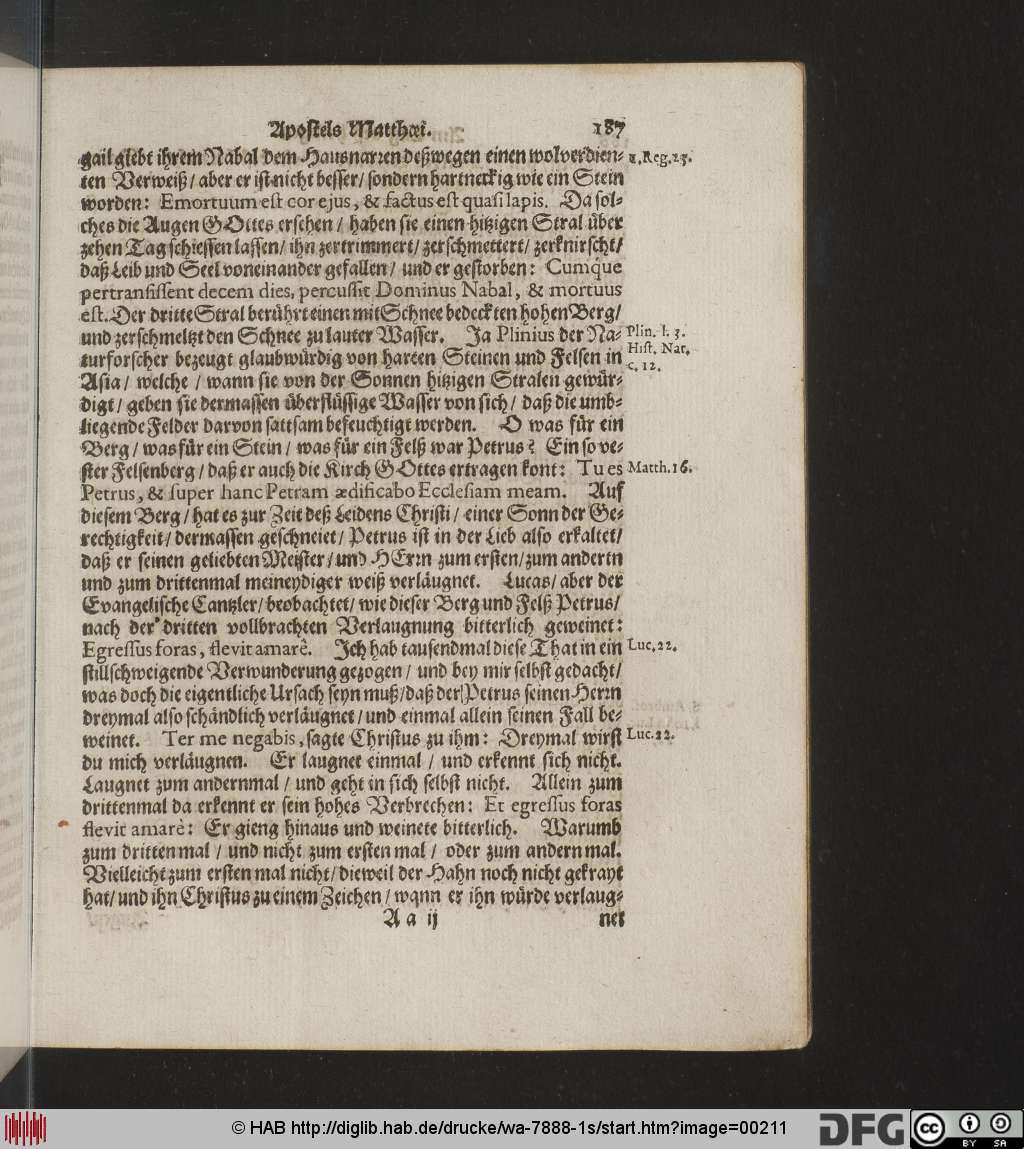 Apostels Matthæi. 187
gail giebt ihrem Nabal dem Hausnarren deßwegen einen wolverdien- 1. Reg. 25.
ten Verweiß / aber er ist nicht besser / sondern hartneckig wie ein Stein
worden: Emortuum est cor ejus, & factus est quasi lapis. Da sol-
ches die Augen GOttes ersehen / haben sie einen hitzigen Stral über
zehen Tag schiessen lassen / ihn zertrimmert / zerschmettert / zerknirscht /
daß Leib und Seel voneinander gefallen / und er gestorben: Cumq́ue
pertransissent decem dies, percussit Dominus Nabal, & mortuus
est. Der dritte Stral berührt einen mit Schnee bedeckten hohen Berg /
und zerschmeltzt den Schnee zu lauter Wasser. Ja Plinius der Na- Plin. l. 3.
turforscher bezeugt glaubwürdig von harten Steinen und Felsen in Hist. Nat.
Asia / welche / wann sie von der Sonnen hitzigen Stralen gewür- c. 12.
digt / geben sie dermassen überflüssige Wasser von sich / daß die umb-
liegende Felder darvon sattsam befeuchtigt werden. O was für ein
Berg / was für ein Stein / was für ein Felß war Petrus? Ein so ve-
ster Felsenberg / daß er auch die Kirch GOttes ertragen kont: Tu es Matth. 16.
Petrus, & super hanc Petram ædificabo Ecclesiam meam. Auf
diesem Berg / hat es zur Zeit deß Leidens Christi / einer Sonn der Ge-
rechtigkeit / dermassen geschneiet / Petrus ist in der Lieb also erkaltet /
daß er seinen geliebten Meister / und HErrn zum ersten / zum andertn
und zum drittenmal meineydiger weiß verläugnet. Lucas / aber der
Evangelische Cantzler / beobachtet / wie dieser Berg und Felß Petrus /
nach der dritten vollbrachten Verlaugnung bitterlich geweinet:
Egressus foras, flevit amarè. Ich hab tausendmal diese That in ein Luc. 22.
stillschweigende Verwunderung gezogen / und bey mir selbst gedacht /
was doch die eigentliche Ursach seyn muß / daß der Petrus seinen Herrn
dreymal also schändlich verläugnet / und einmal allein seinen Fall be-
weinet. Ter me negabis, sagte Christus zu ihm: Dreymal wirst Luc. 22.
du mich verläugnen. Er laugnet einmal / und erkennt sich nicht.
Laugnet zum andernmal / und geht in sich selbst nicht. Allein zum
drittenmal da erkennt er sein hohes Verbrechen: Et egressus foras
flevit amarè: Er gieng hinaus und weinete bitterlich. Warumb
zum dritten mal / und nicht zum ersten mal / oder zum andern mal.
Vielleicht zum ersten mal nicht / dieweil der Hahn noch nicht gekrayt
hat / und ihn Christus zu einem Zeichen / wann er ihn würde verlaug-
A a ij net
© HAB http://diglib.hab.de/drucke/wa-7888-1s/start.htm?image=00211
DFG
cc BY SA